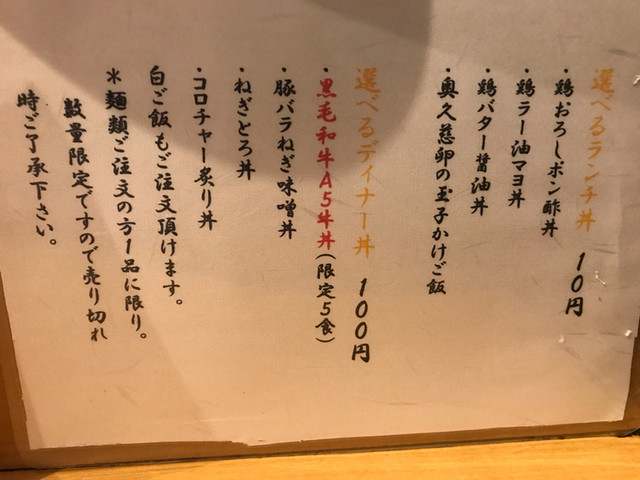 選べるランチ丼 10円
・鶏おろしポン酢丼
・鶏ラー油マヨ丼
・鶏バター醤油丼
・奥久慈卵の玉子かけご飯
選べるディナー丼 100円
・黒毛和牛A5牛丼(限定5食)
・豚バラねぎ味噌丼
・ねぎとろ丼
・コロチャー炙り丼
白ご飯もご注文頂けます。
＊麺類ご注文の方1品に限り。
数量限定ですので売り切れ
時ご了承下さい。